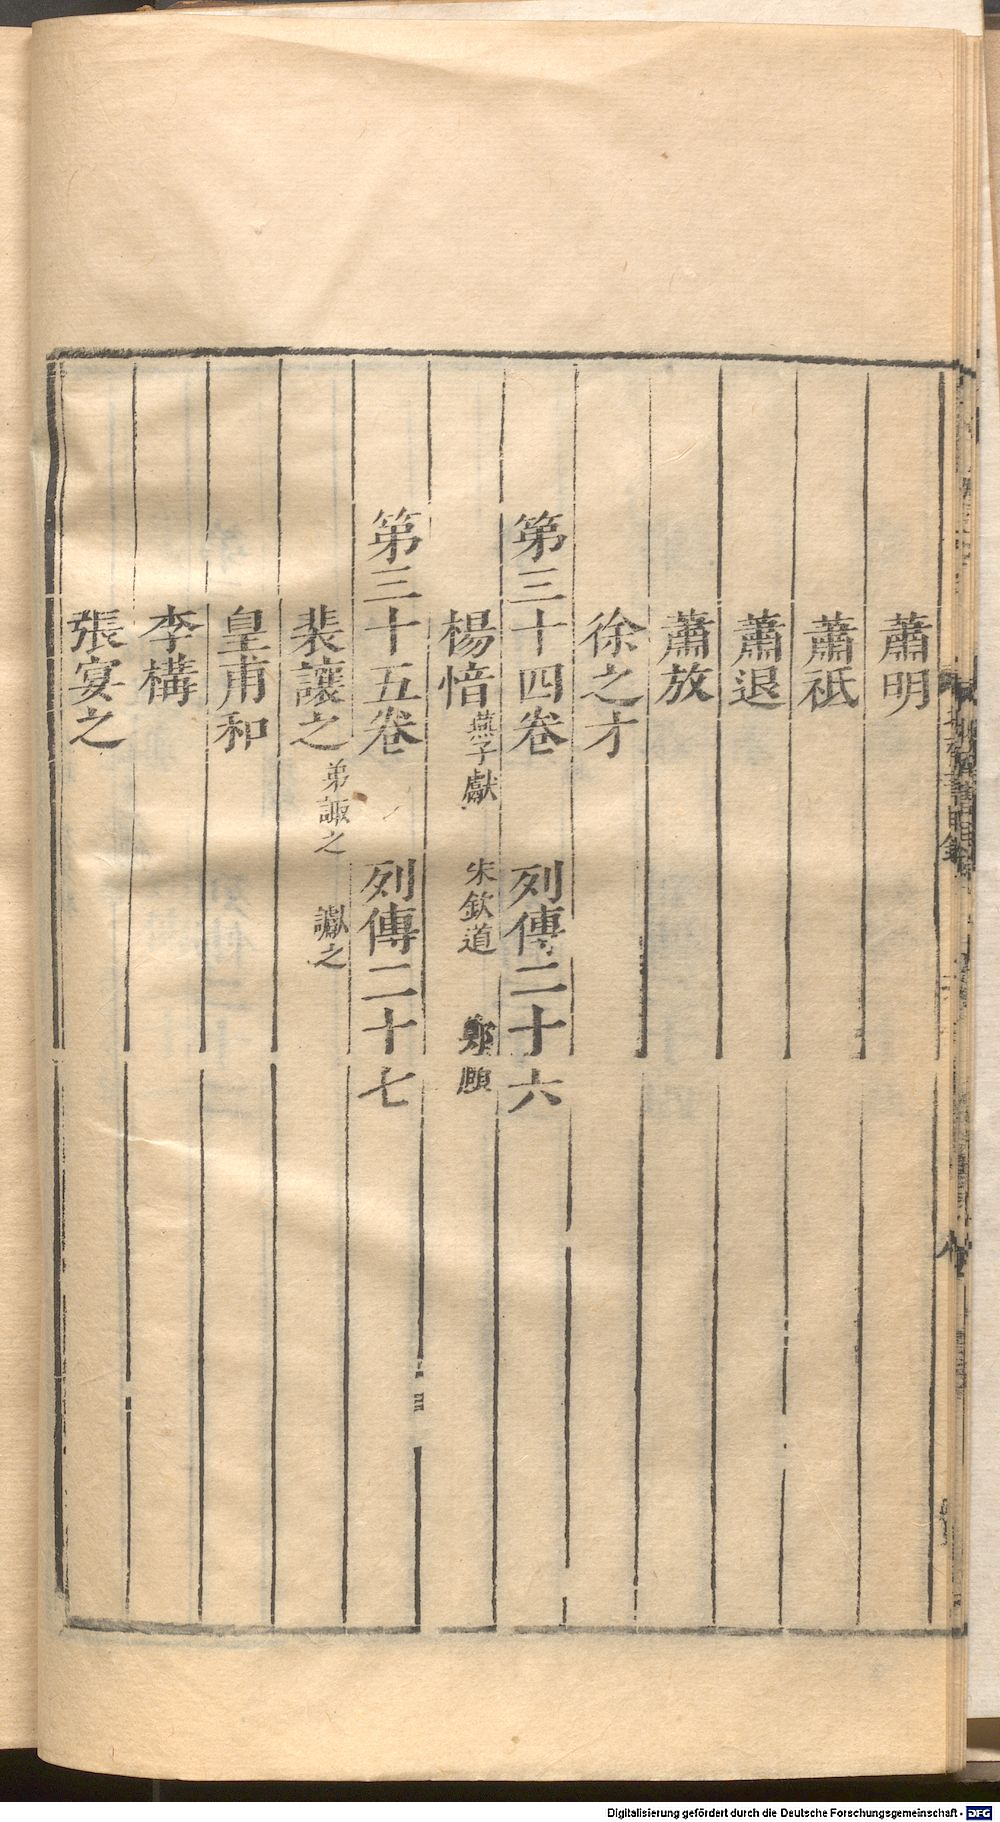 蕭明
蕭祇
蕭退
蕭放
徐之才
第三十四卷 列傳二十六
楊愔 燕子獻 宋欽道 鄭頤
第三十五卷 列傳二十七
裴讓之 弟諏之 讞之
皇甫和
李構
張宴之
Digitalisierung gefördert durch die Deutsche Forschungsgemeinschaft - DFG